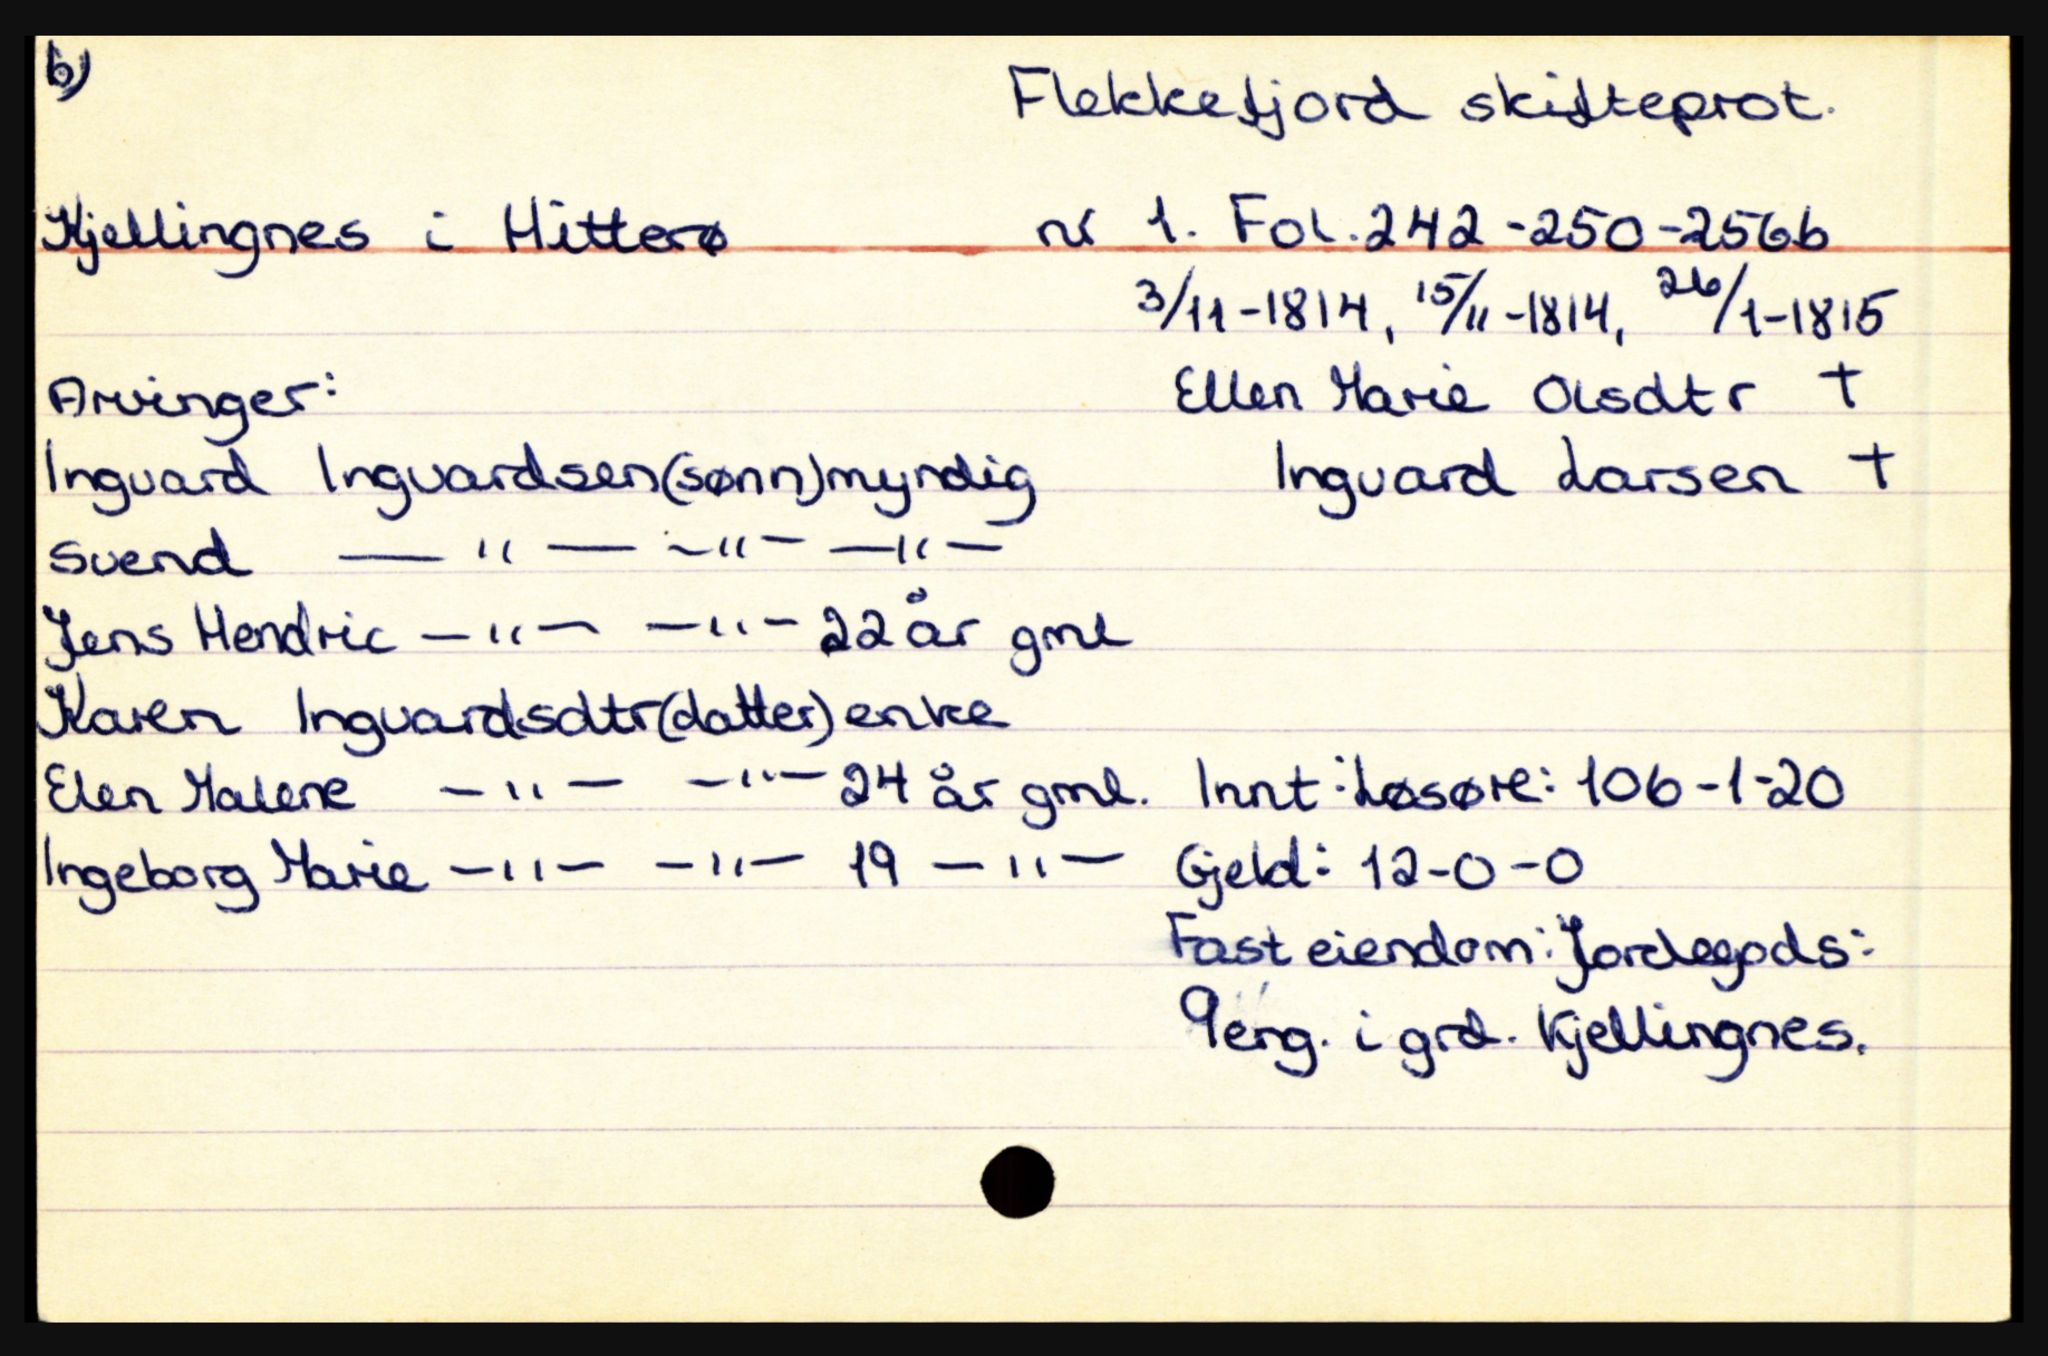 b)
Flekkefjord skifteprot.
Kjellingnes i Hitterø nr 1. Fol. 242-250-256b
3/11-1814, 15/11-1814, 26/1-1815
Arvinger: Ellen Marie Olsdtr †
Ingvard Ingvardsen (sønn) myndig Ingvard Larsen †
Svend — " — — " — — " —
Jens Hendric — " — — " — 22 år gml
Karen Ingvardsdtr (datter) enke
Elen Malene — " — — " — 24 år gml. Innt: Løsøre: 106-1-20
Ingeborg Marie — " — — " — 19 — " — Gjeld: 12-0-0
Fast eiendom: Jordegods:
9 eng. i grd. Kjellingnes.